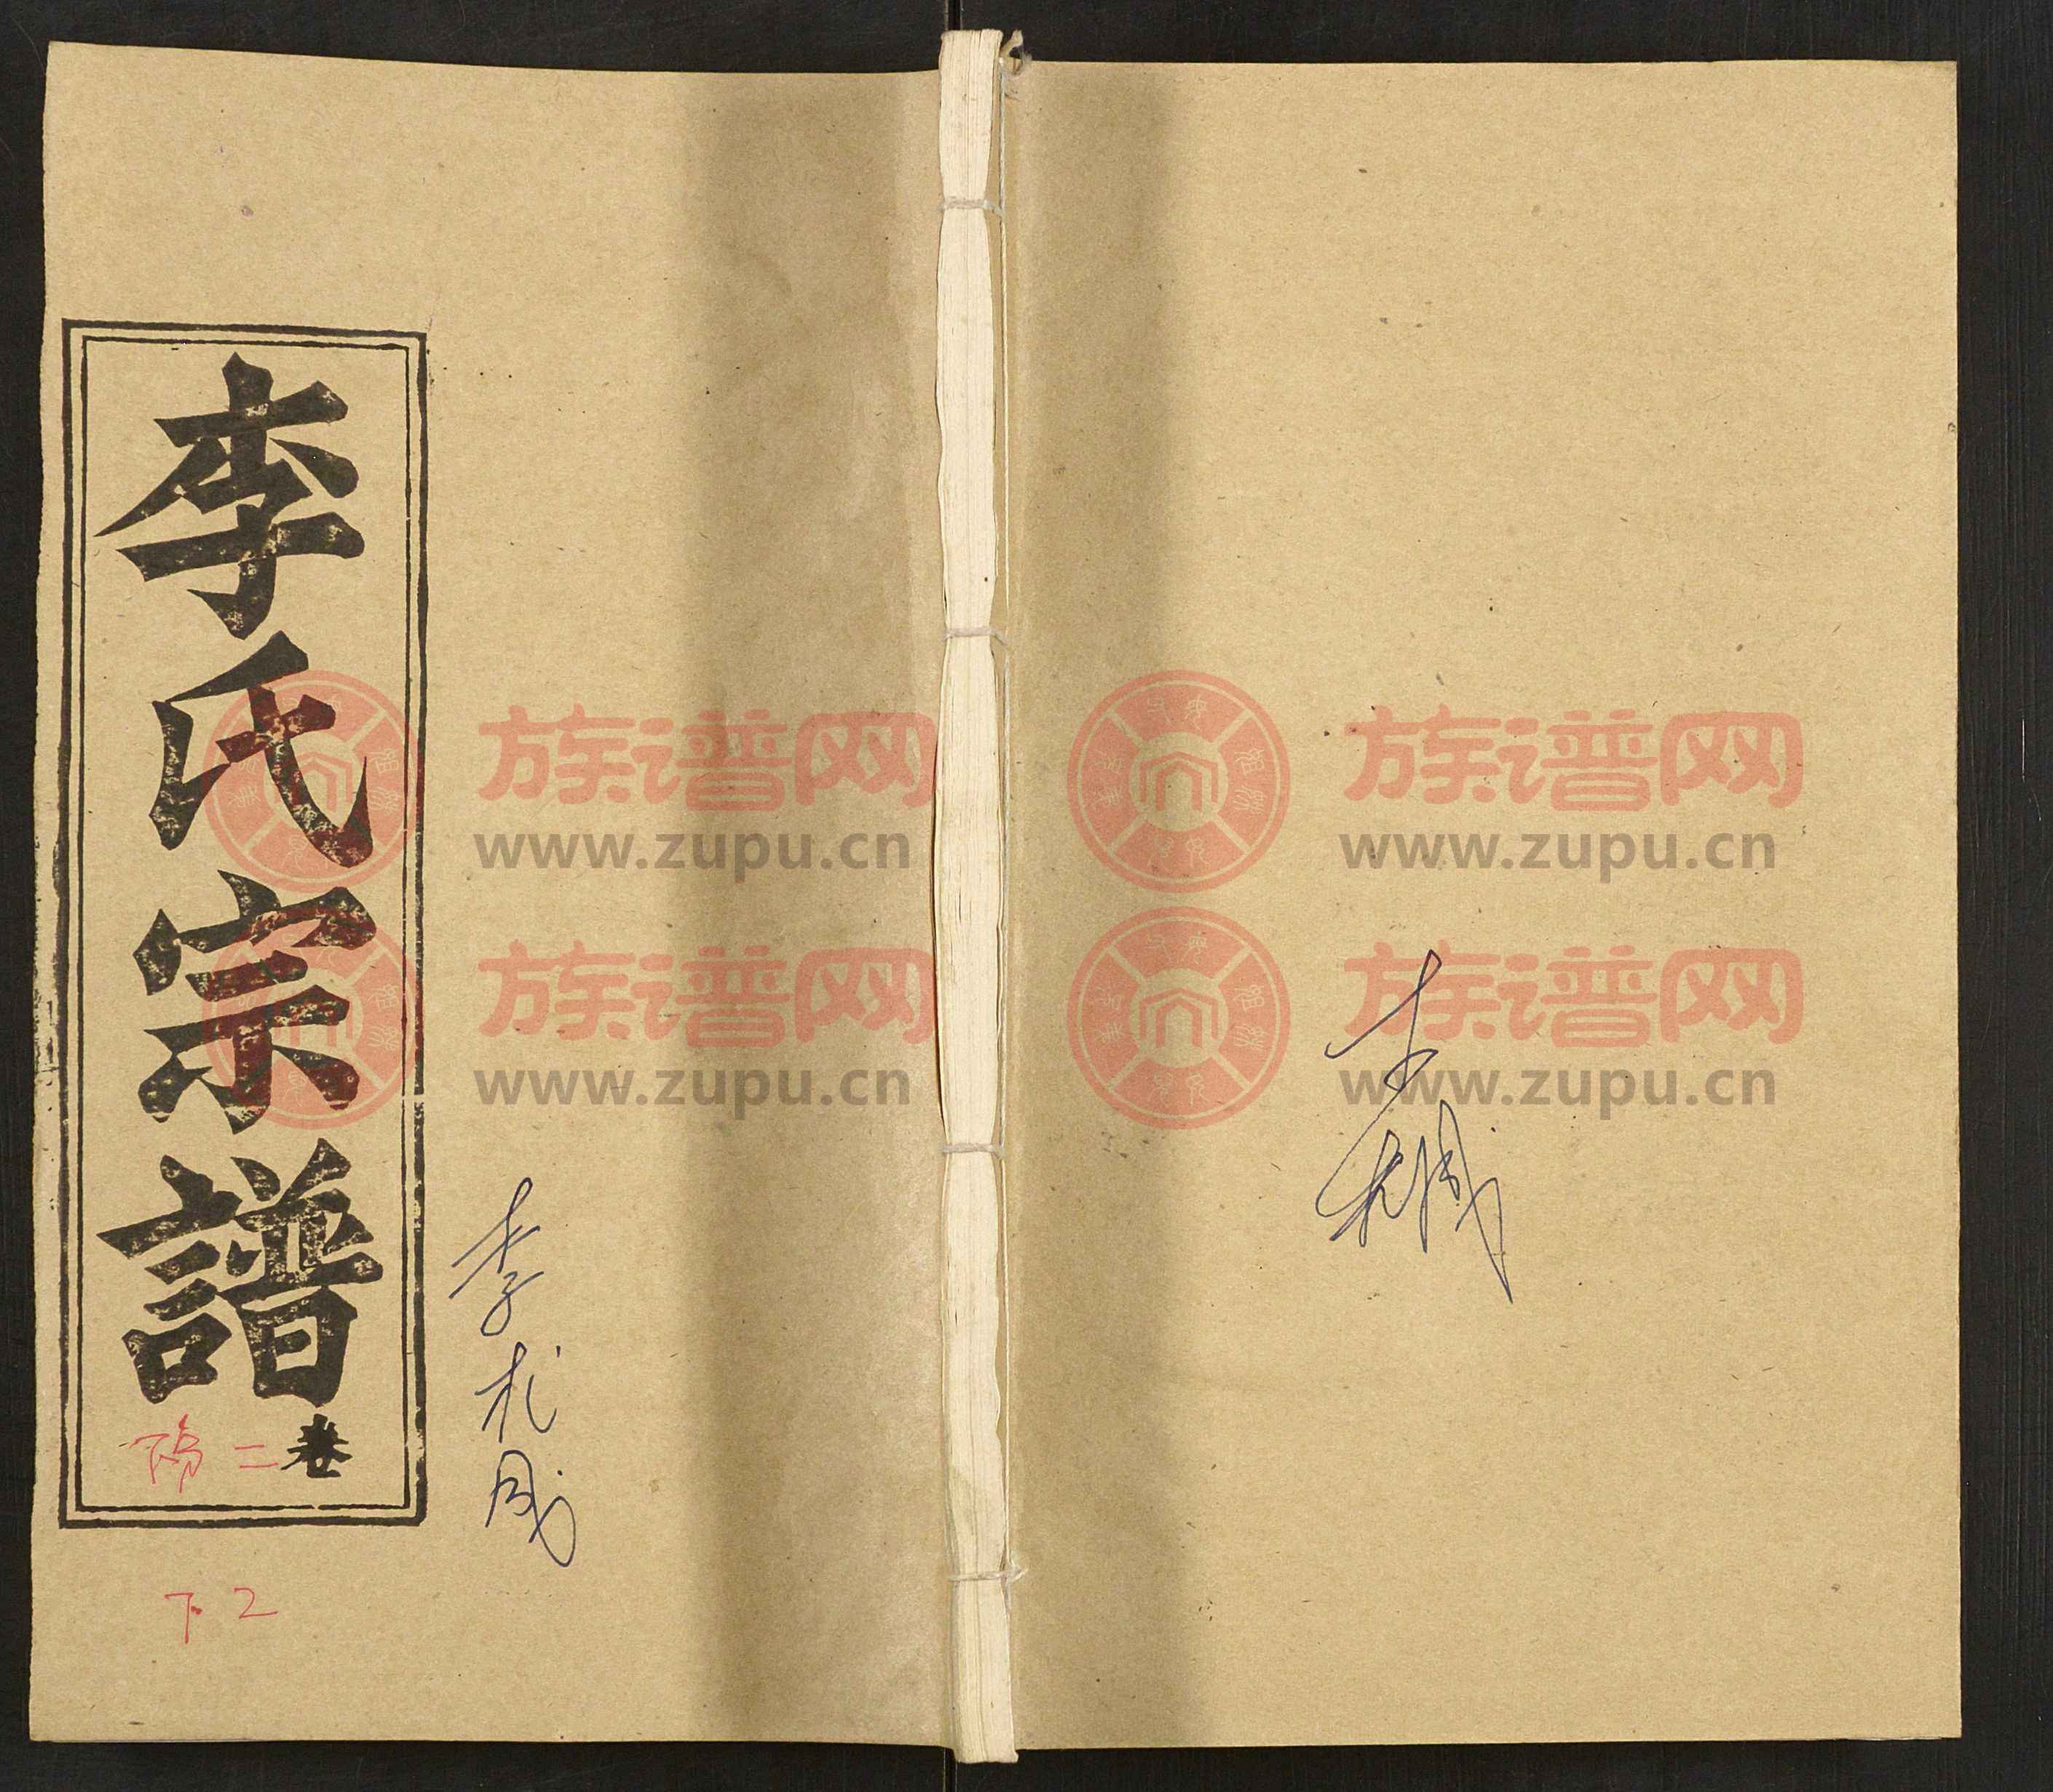 李氏宗譜
卷二
下2
李
族谱网
www.zupu.cn
族谱网
www.zupu.cn
族谱网
www.zupu.cn
族谱网
www.zupu.cn